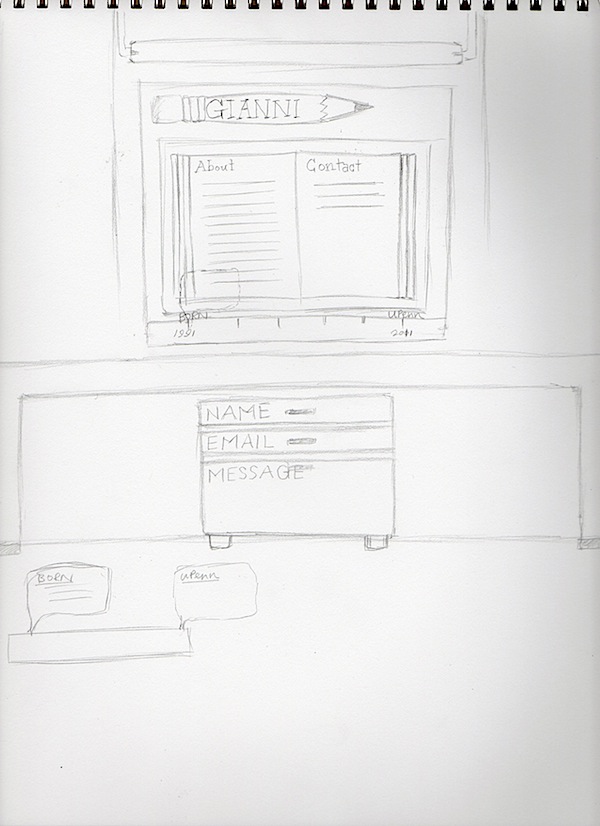 GIANNI
About
Contact
BORN
UPenn
1991
2011
NAME
EMAIL
MESSAGE
BORN
UPenn